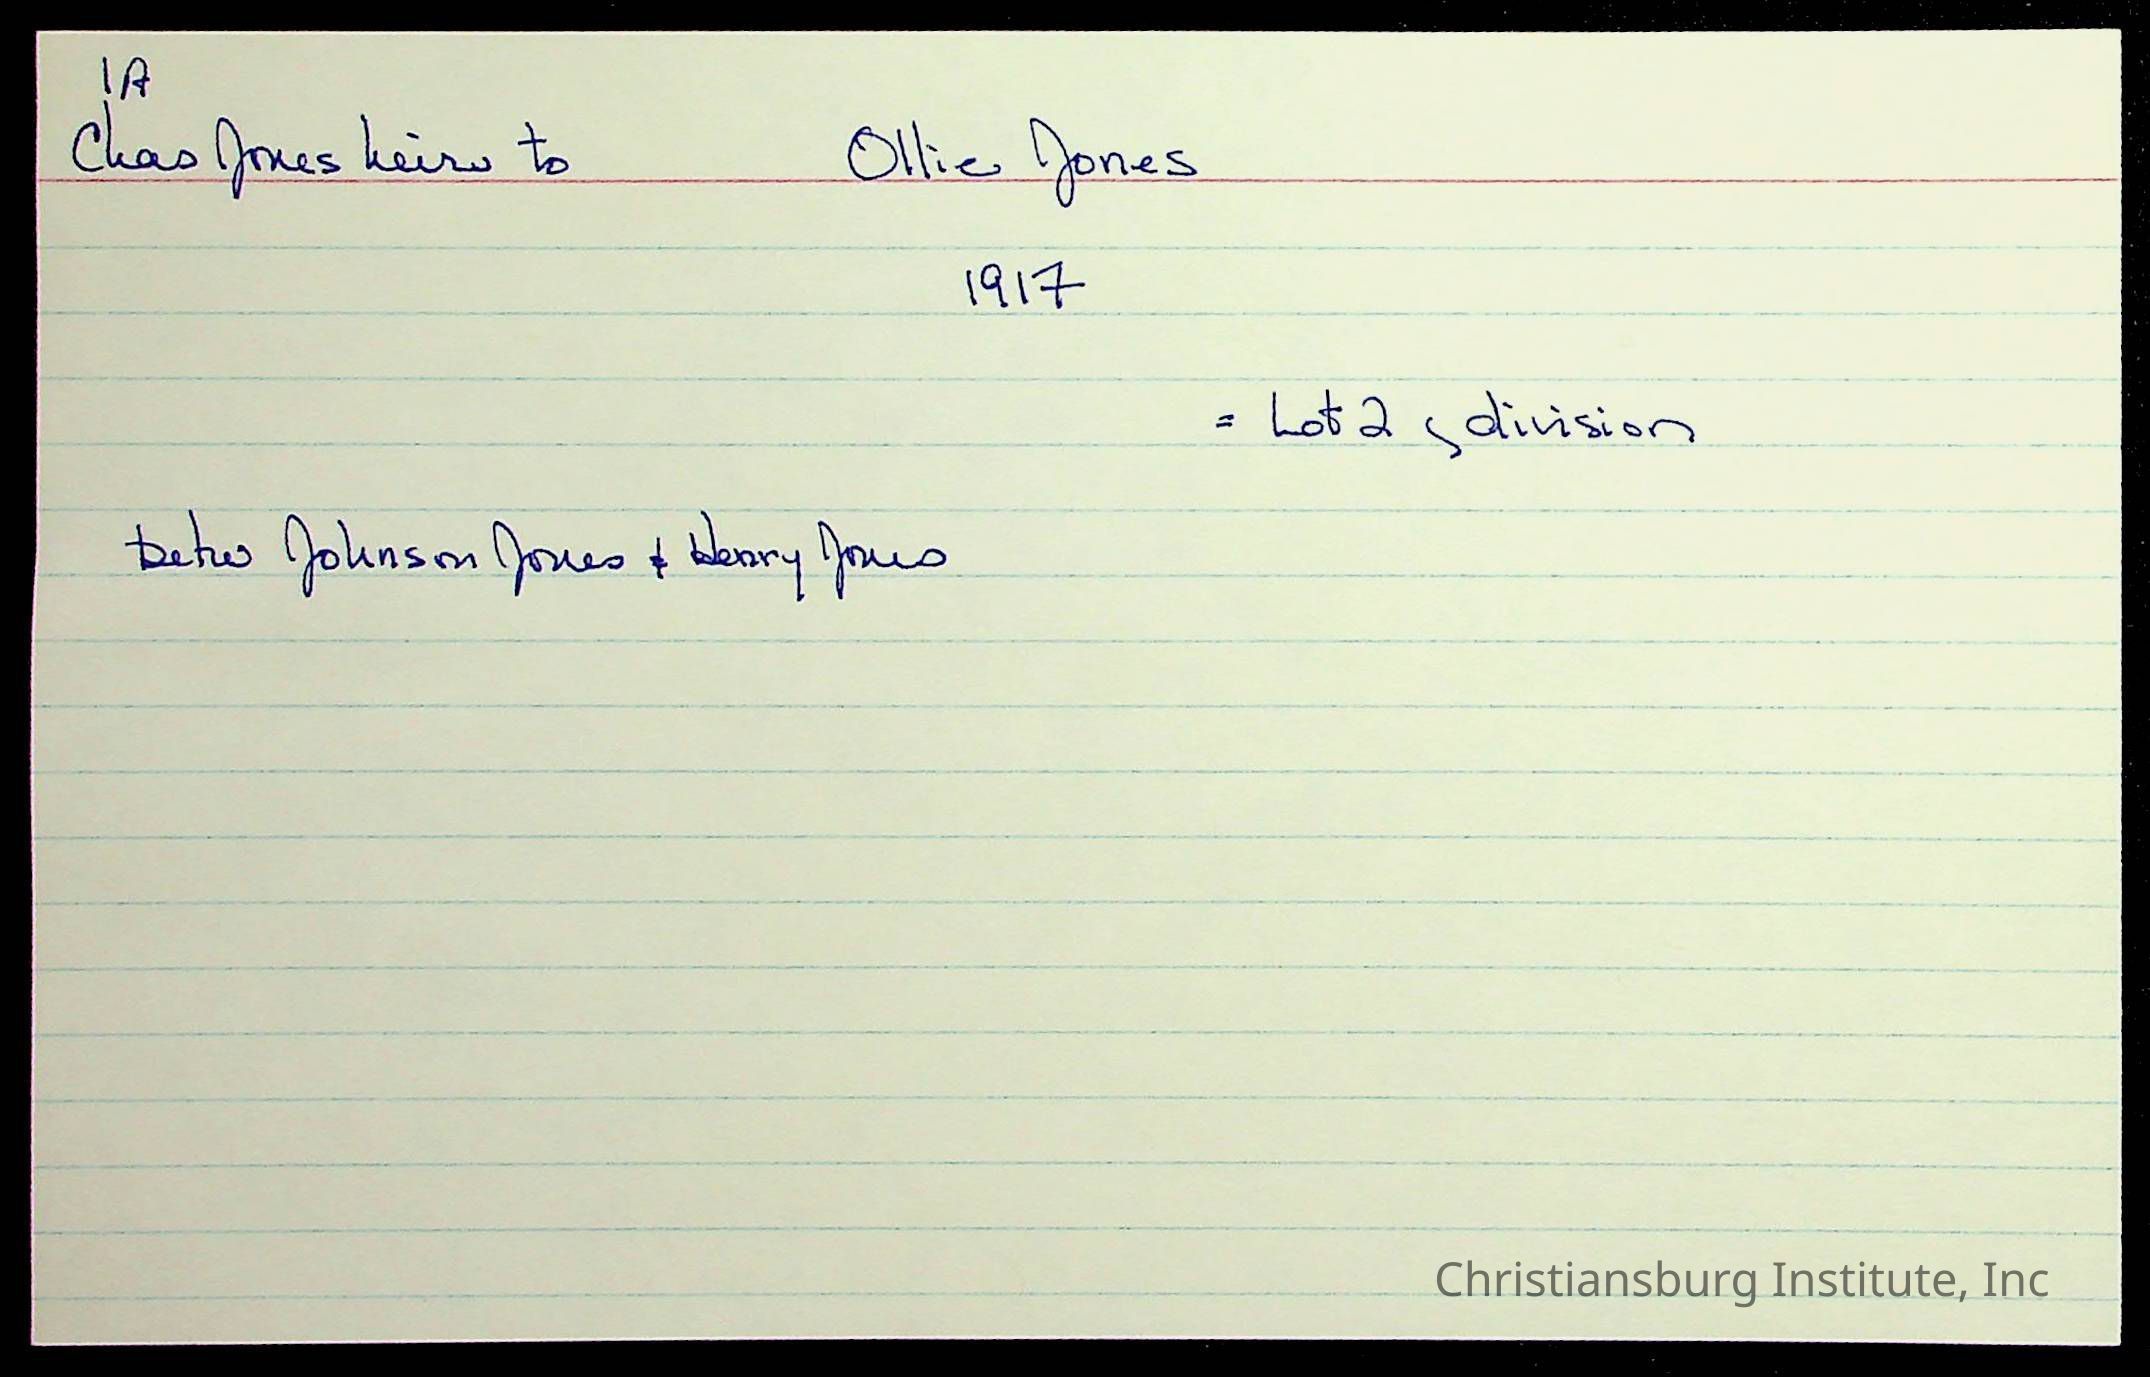 1A
Chas Jones heirs to Ollie Jones
1917
= Lot 2 of division
betw Johnson Jones & Henry Jones
Christiansburg Institute, Inc